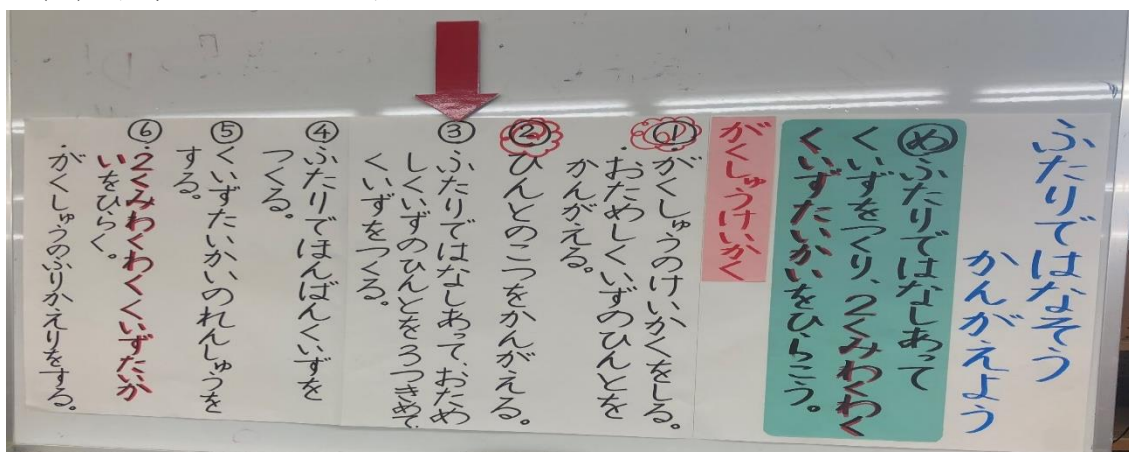 ふたりではなそう
かんがえよう
め ふたりではなしあって
くいずをつくり、2くみわくわく
くいずたいかいをひらこう。
がくしゅうけいかく
①・がくしゅうのけいかくをしる。
・おためしくいずのひんとを
かんがえる。
②ひんとのこつをかんがえる。
③・ふたりではなしあって、おため
しくいずのひんとを3つきめて
くいずをつくる。
④・ふたりでほんばんくいずを
つくる。
⑤・くいずたいかいのれんしゅうを
する。
⑥・2くみわくわくくいずたいか
いをひらく。
・がくしゅうのふりかえりをする。